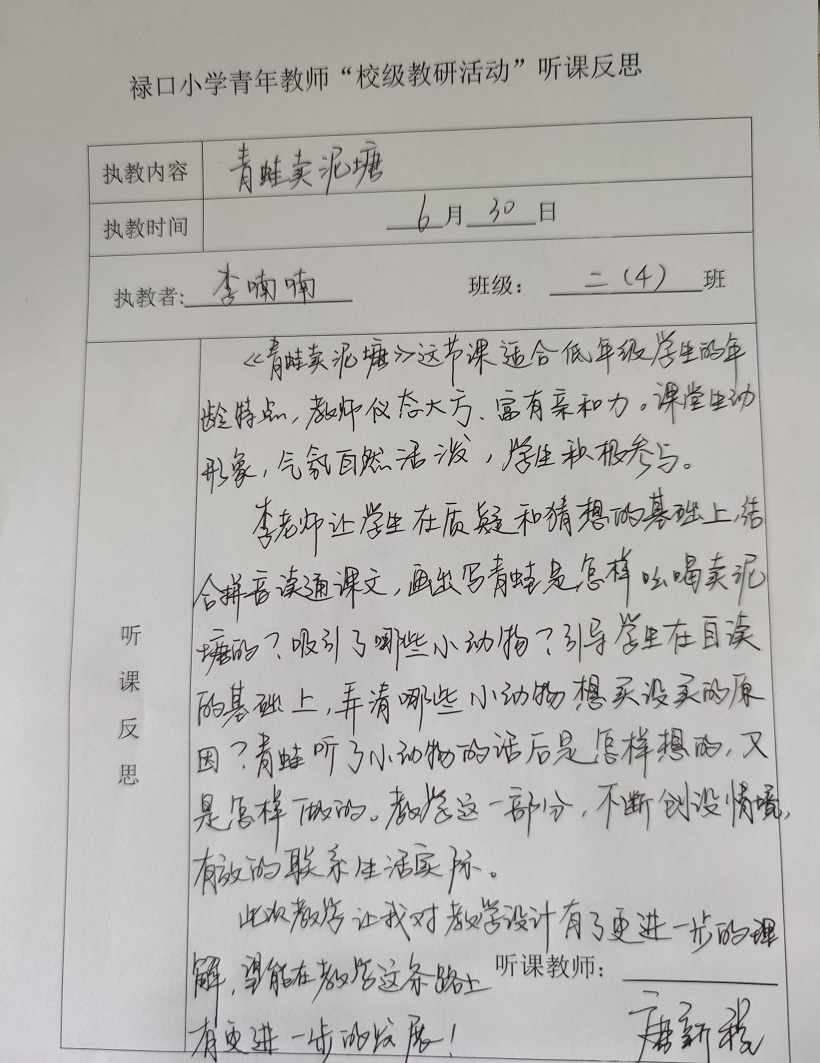 禄口小学青年教师“校级教研活动”听课反思
执教内容 青蛙卖泥塘
执教时间 6月30日
执教者:李喃喃 班级：二(4)班
听课反思
《青蛙卖泥塘》这节课适合低年级学生的年
龄特点，教师仪态大方、富有亲和力。课堂生动
形象，气氛自然活泼，学生积极参与。
李老师让学生在质疑和猜想的基础上，结
合拼音读通课文，画出写青蛙是怎样吆喝卖泥
塘的？吸引了哪些小动物？引导学生在自读
的基础上，弄清哪些小动物想买没买的原
因？青蛙听了小动物的话后是怎样想的，又
是怎样做的。教学这一部分，不断创设情境，
有效的联系生活实际。
此次教学让我对教学设计有了更进一步的理
解，望能在教学这条路上
有更进一步的发展！
听课教师：
唐新